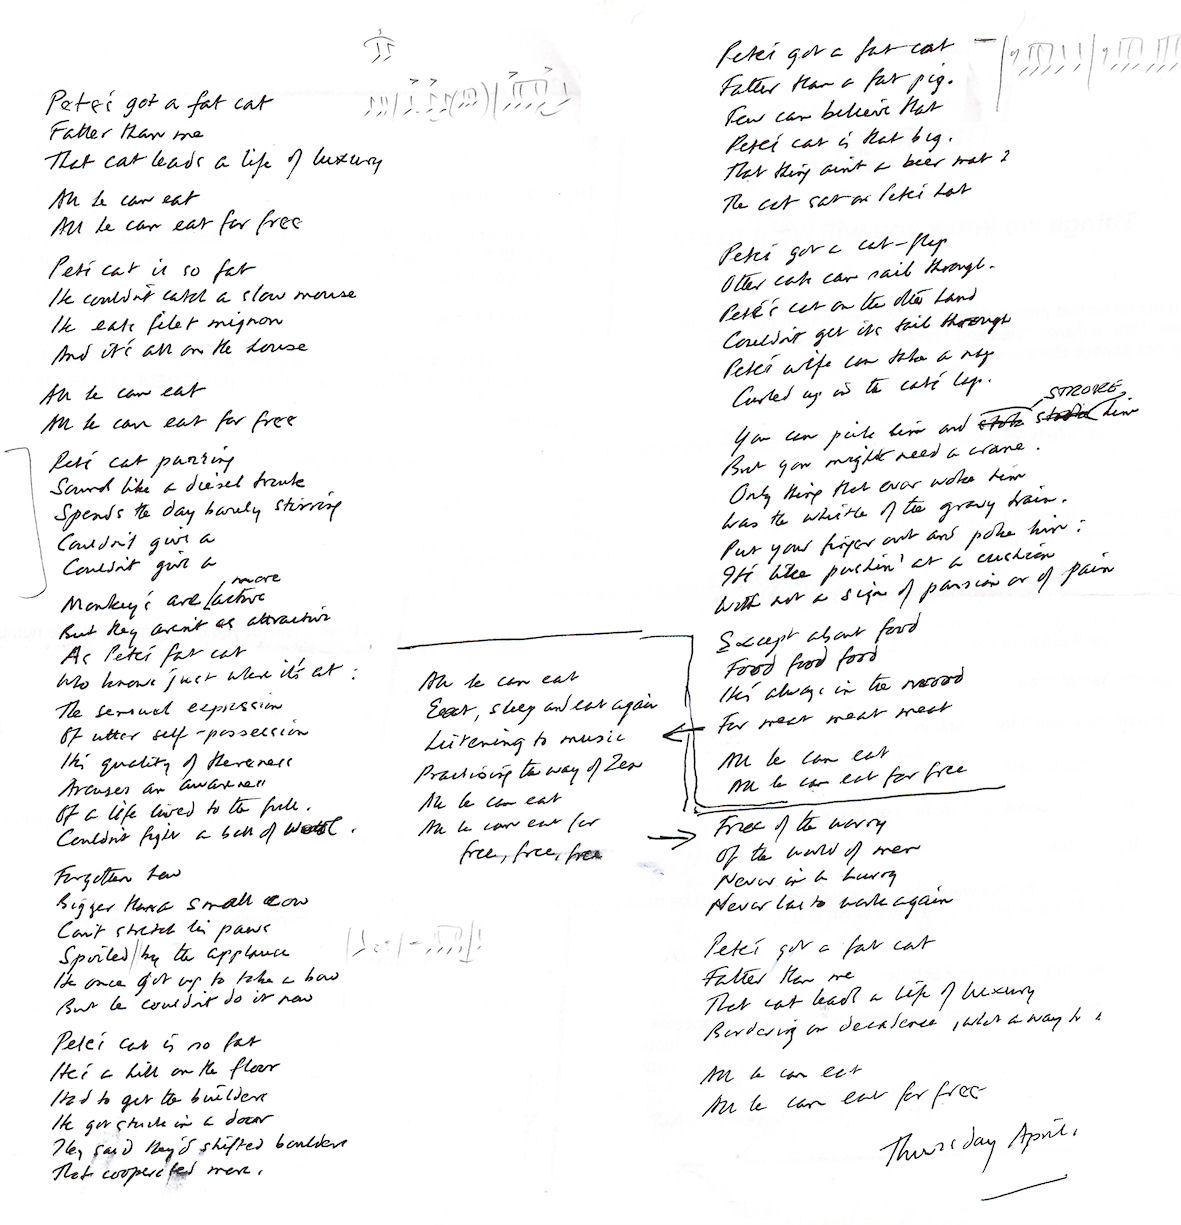 Pete's got a fat cat
Fatter than me
That cat leads a life of luxury
All he can eat
All he can eat for free
Pete's cat is so fat
He couldn't catch a slow mouse
He eats filet mignon
And it's all on the house
All he can eat
All he can eat for free
Pete's cat purring
Sounds like a diesel truck
Spends the day barely stirring
Couldn't give a
Couldn't give a
Monkey's are more active
But they aren't as attractive
As Pete's fat cat
Who knows just where it's at:
The sensual expression
Of utter self-possession
His quality of thereness
Arouses an awareness
Of a life lived to the full.
Couldn't fight a ball of wool.
Forgotten how
Bigger than a small cow
Can't stretch his paws
Spoiled by the applause
He once got up to take a bow
But he couldn't do it now
Pete's cat is so fat
He's a hill on the floor
Had to get the builders
He got stuck in a door
They said they'd shifted boulders
That cooperated more.
All he can eat
Eat, sleep and eat again
Listening to music
Practising the way of Zen
All he can eat
All he can eat for
free, free, free
Pete's got a fat cat
Fatter than a fat pig.
Few can believe that
Pete's cat is that big.
That thing ain't a beer mat?
The cat sat on Pete's hat
Pete's got a cat-flap
Other cats can sail through.
Pete's cat on the other hand
Couldn't get its tail through
Pete's wife can take a nap
Curled up in the cat's lap.
You can pick him and STROKE him
But you might need a crane.
Only thing that ever woke him
Was the whistle of the gravy train.
Put your finger out and poke him:
It's like pushin' at a cushion
With not a sign of passion or of pain
Except about food
Food food food
He's always in the mood
For meat meat meat
All he can eat
All he can eat for free
Free of the worry
Of the world of men
Never in a hurry
Never has to work again
Pete's got a fat cat
Fatter than me
That cat leads a life of luxury
Bordering on decadence, what a way to
All he can eat
All he can eat for free
Thursday April.